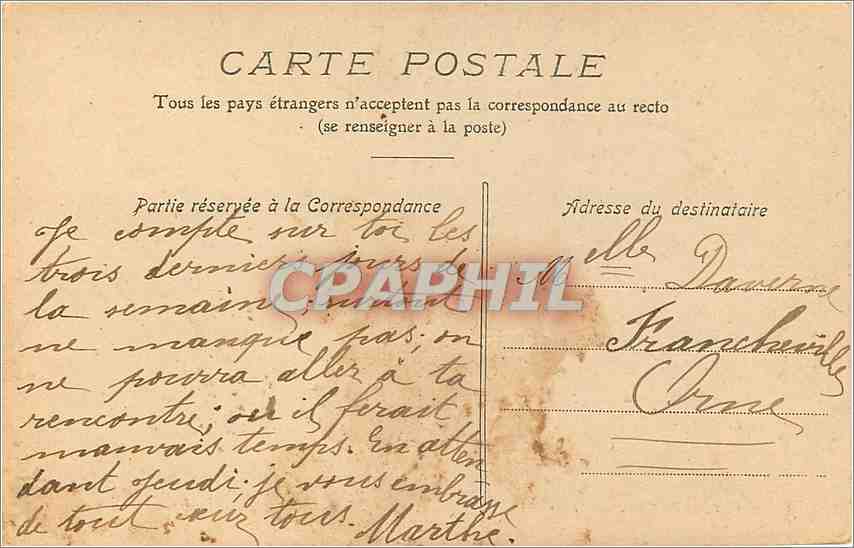 CARTE POSTALE
Tous les pays étrangers n'acceptent pas la correspondance au recto
(se renseigner à la poste)
Partie réservée à la Correspondance
Je compte sur toi les
trois derniers jours de
la semaine, surtout
ne manque pas; on
ne pourra aller à ta
rencontre; il ferait
mauvais temps. En atten
dant jeudi je vous embrasse
de tout tous. Marthe.
Adresse du destinataire
Melle Daverne
Francheville
Orne
CPAPHIL